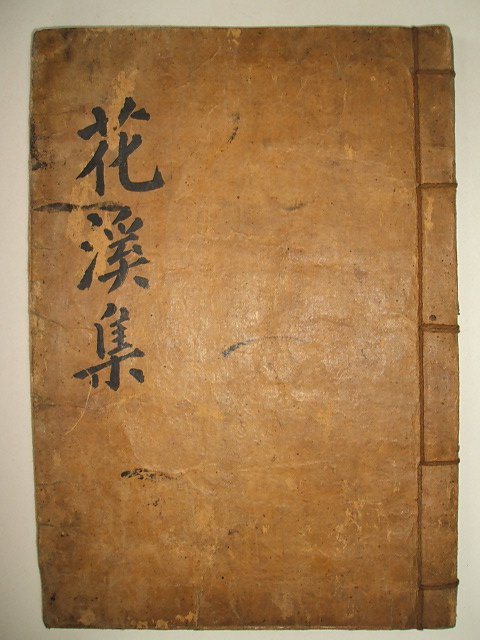 花溪集